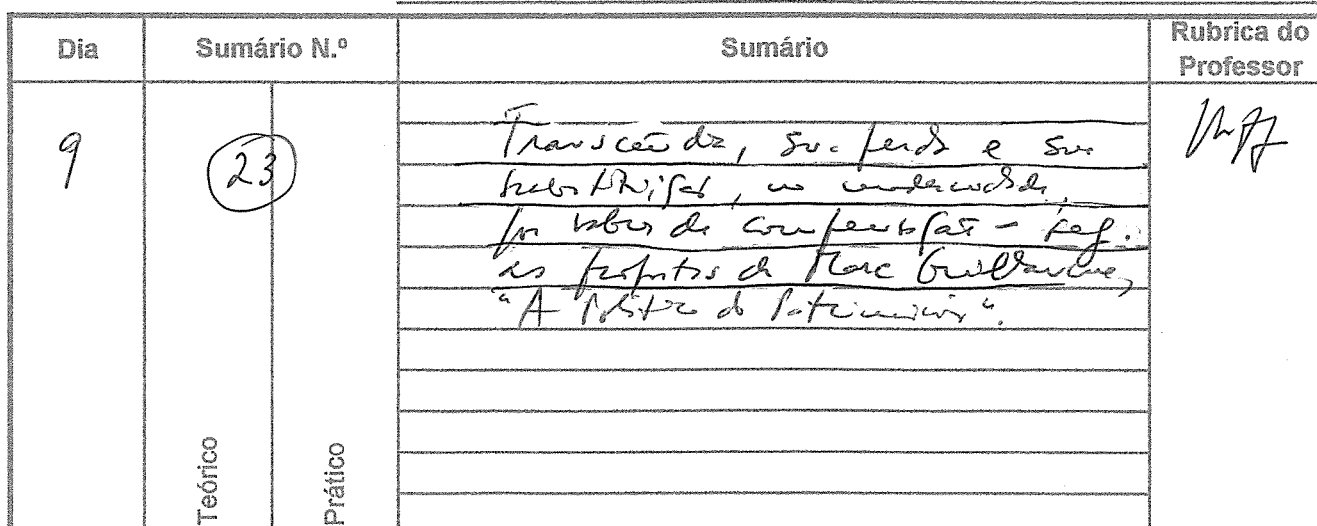 Dia Sumário N.º Sumário Rubrica do Professor
9 23 Transcendª, sua perda e sua
substituição, na modernidade,
por valores de compensação - seg.
as propostas de Marc Guillaume,
"A Política do Património".
Teórico Prático